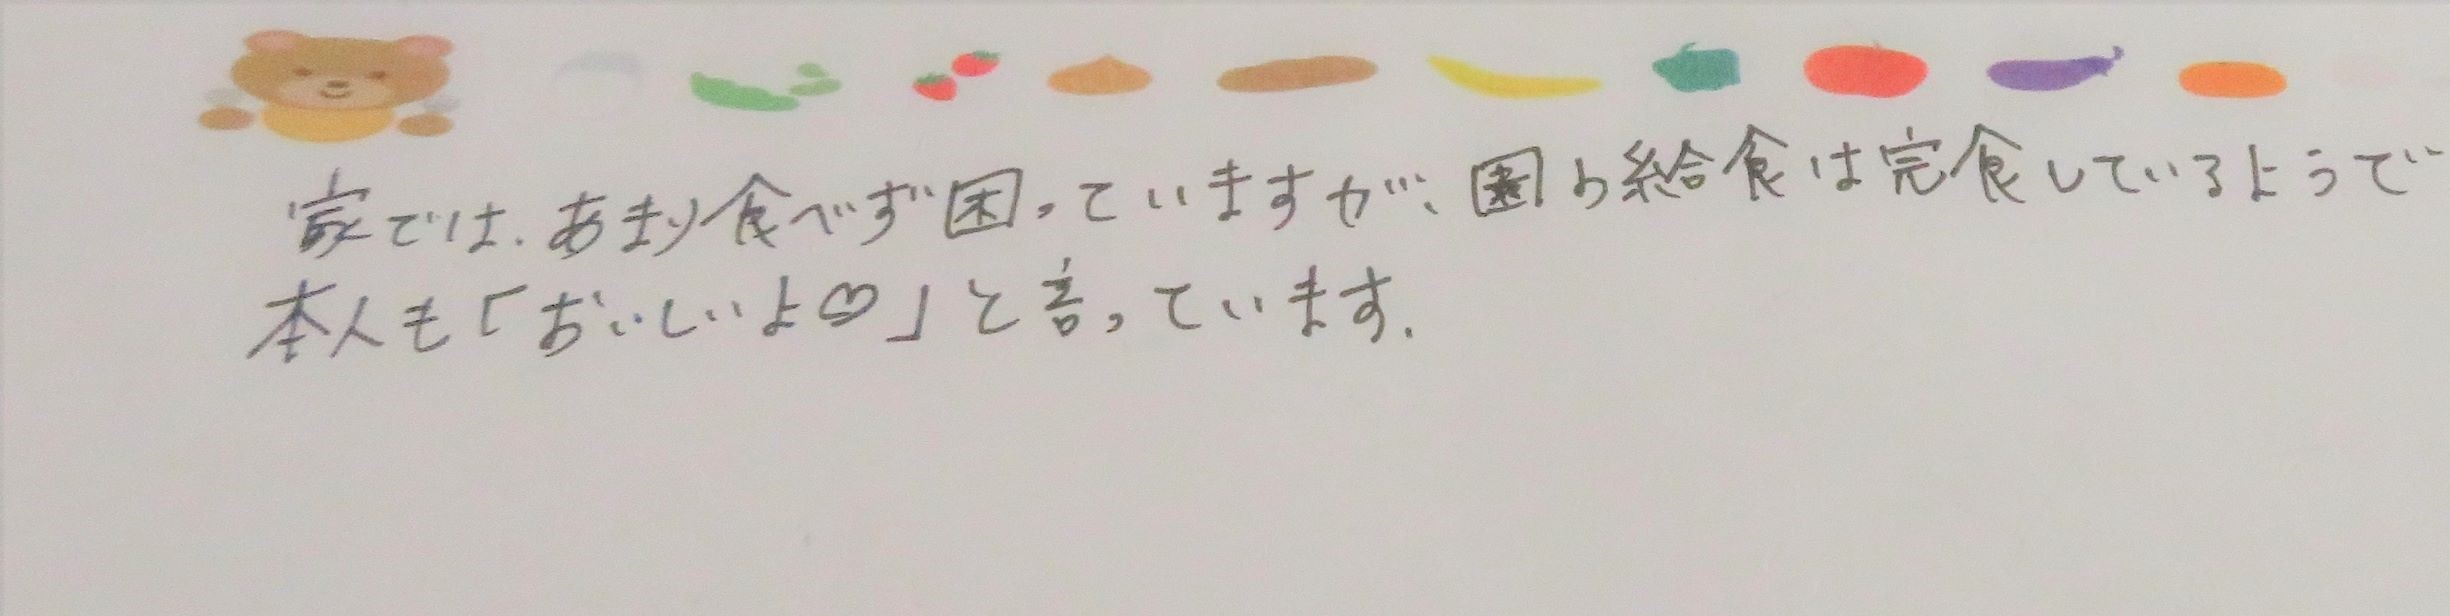 家では、あまり食べず困っていますが、園の給食は完食しているようで
本人も「おいしいよ♡」と言っています.